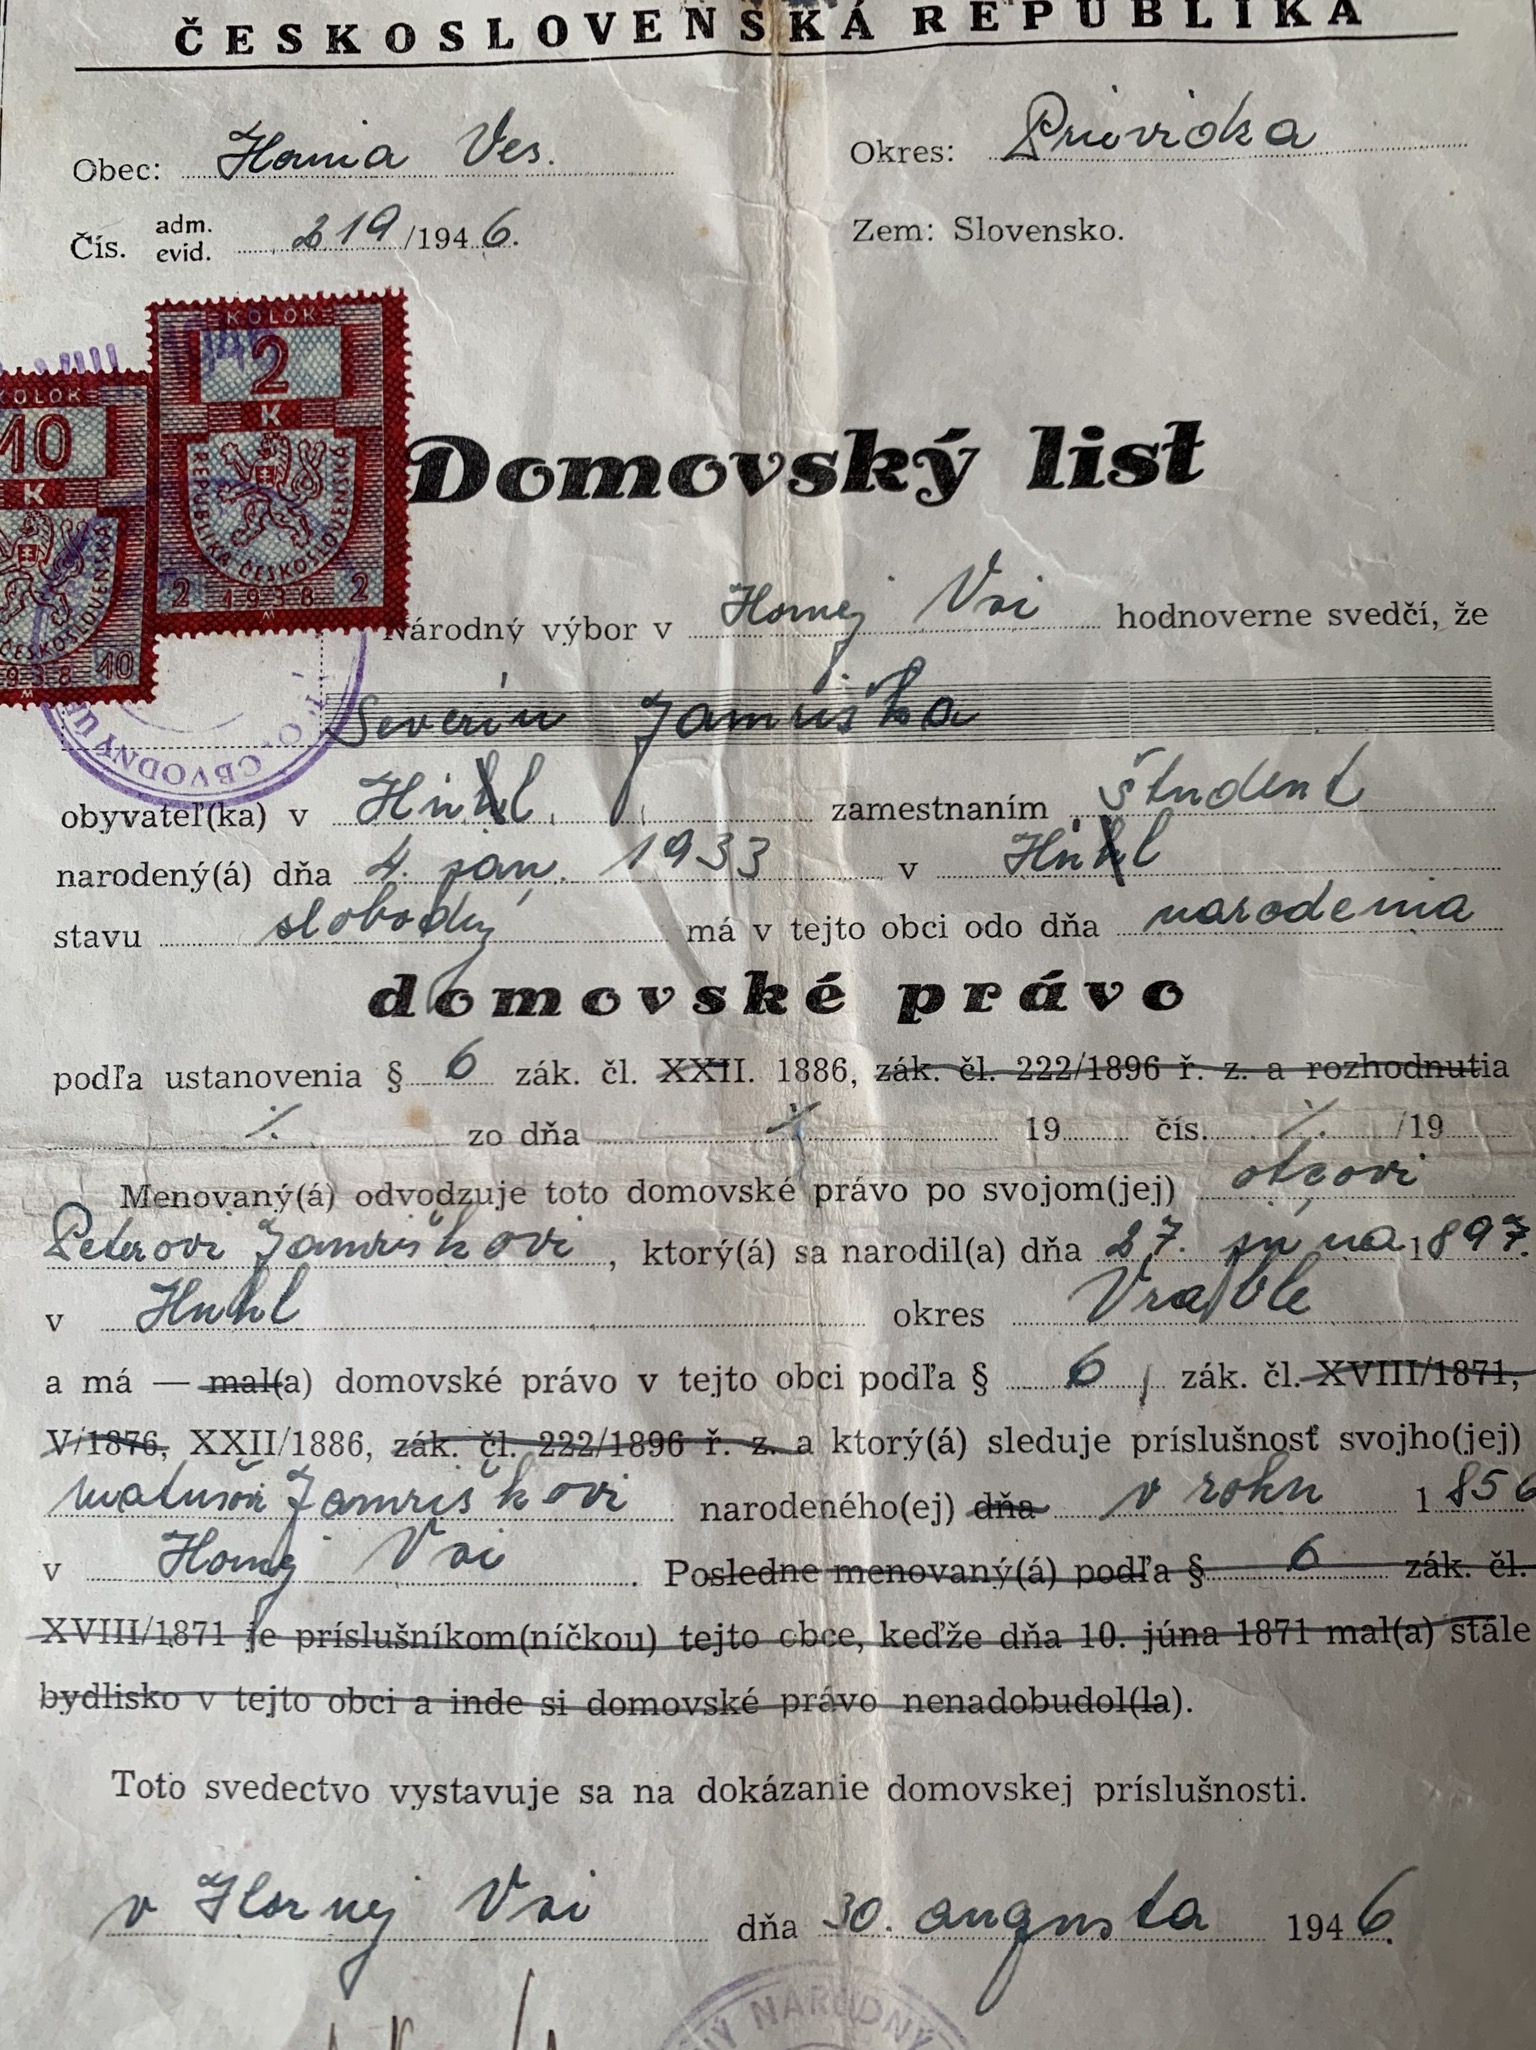 ČESKOSLOVENSKÁ REPUBLIKA
Obec: Hornia Ves.
Okres: Prievidza
Čís. adm. evid. 219/1946.
Zem: Slovensko.
KOLOK
2
K
REPUBLIKA ČESKOSLOVENSKÁ
2 1938 2
KOLOK
10
K
ČESKOSLOVENSKÁ
938 10
Domovský list
Národný výbor v Hornej Vsi hodnoverne svedčí, že
Severín Jamriška
OBVODNÝ
obyvateľ(ka) v zamestnaním študent
narodený(á) dňa 4. jan. 1933 v
stavu slobodný má v tejto obci odo dňa narodenia
domovské právo
podľa ustanovenia § 6 zák. čl. XXII. 1886, zák. čl. 222/1896 ř. z. a rozhodnutia
./. zo dňa ./. 19 čís. ./. /19
Menovaný(á) odvodzuje toto domovské právo po svojom(jej) otcovi
Peterovi Jamriškovi, ktorý(á) sa narodil(a) dňa 27. júna 1897.
v okres Vráble
a má — mal(a) domovské právo v tejto obci podľa § 6, zák. čl. XVIII/1871,
V/1876, XXII/1886, zák. čl. 222/1896 ř. z. a ktorý(á) sleduje príslušnosť svojho(jej)
Matúšovi Jamriškovi narodeného(ej) dňa v roku 1856
v Hornej Vsi. Posledne menovaný(á) podľa § 6 zák. čl.
XVIII/1871 je príslušníkom(níčkou) tejto obce, keďže dňa 10. júna 1871 mal(a) stále
bydlisko v tejto obci a inde si domovské právo nenadobudol(la).
Toto svedectvo vystavuje sa na dokázanie domovskej príslušnosti.
v Hornej Vsi dňa 30. augusta 1946.
NÁRODNÝ